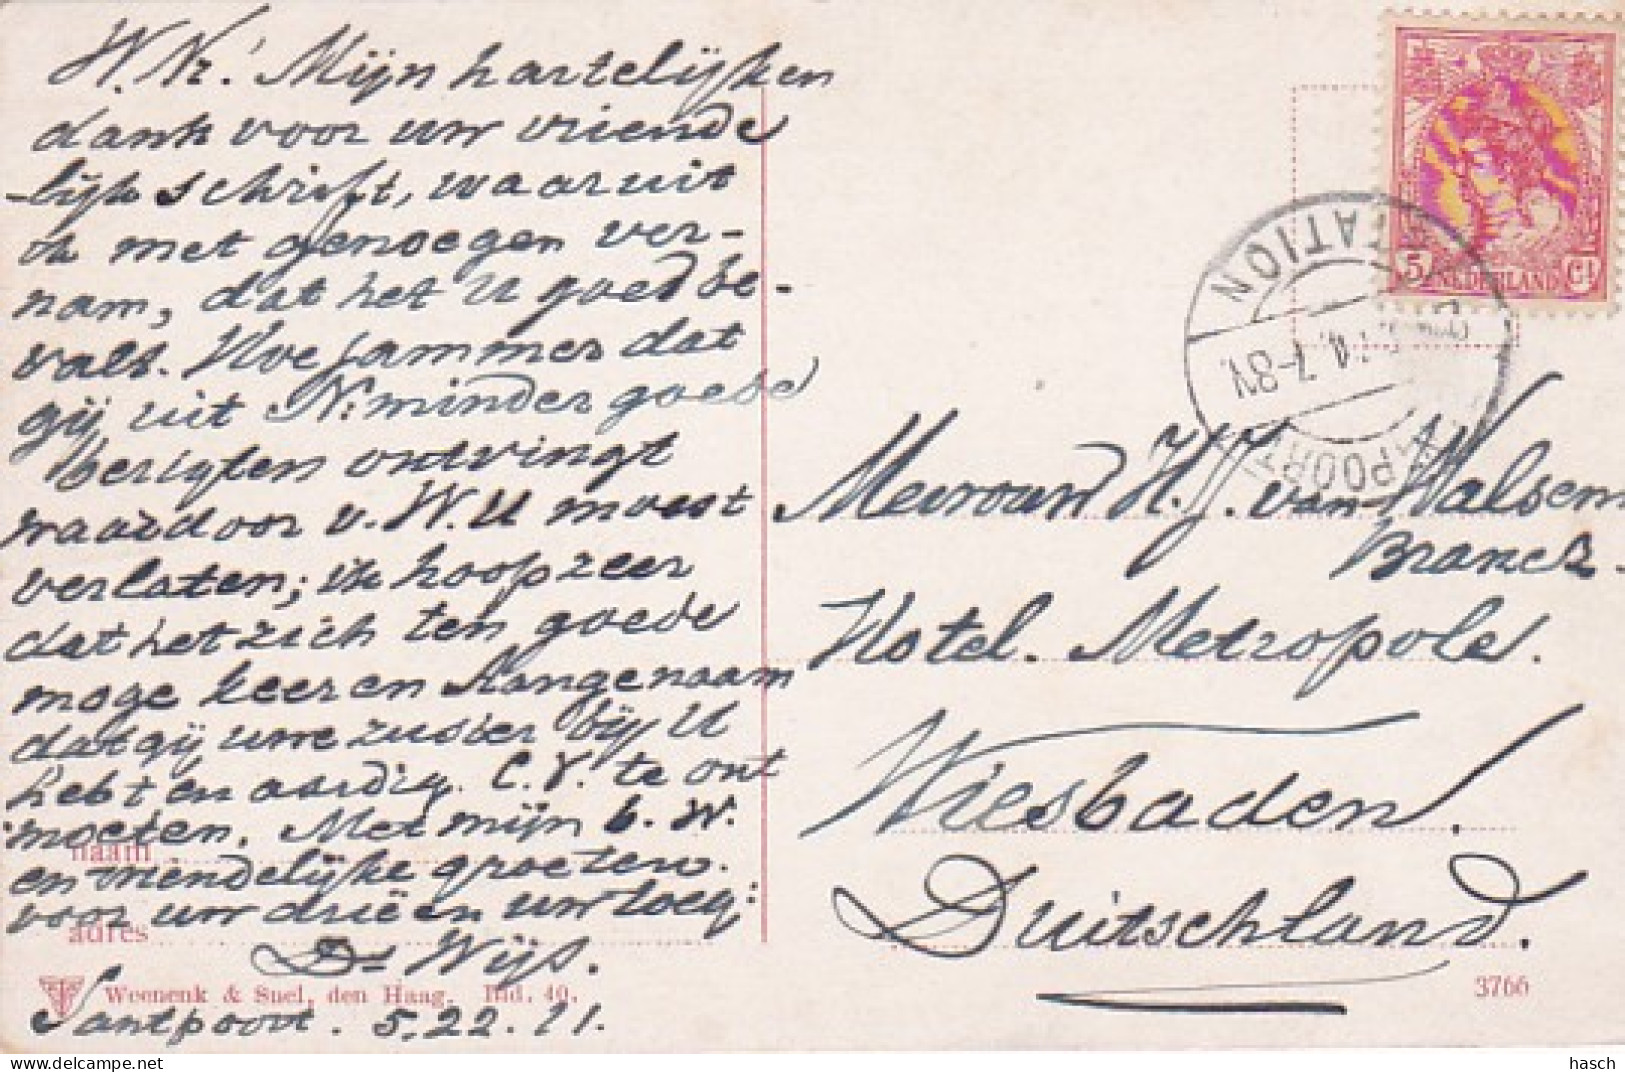 W. Nr.! Mijn hartelijken
dank voor uw vriende
-lijk schrift, waaruit
ik met genoegen ver-
nam, dat het U goed be-
valt. Hoe jammer dat
gij uit N: minder goede
berigten ontvingt
waardoor v. W. U moest
verlaten; ik hoop zeer
dat het zich ten goede
moge keeren Aangenaam
dat gij uwe zuster bij U
hebt en aardig C. V. te ont
moeten. Met mijn b. W.
en vriendelijke groeten.
voor uw drieën uw toeg:
Ds Wijs.
Santpoort. 5.22.11.
naam
adres
Weenenk & Snel, den Haag. Ind. 40.
5 NEDERLAND Ct
STATION
7-8V.
POORT
Mevrouw H. J. van Walsem
Branck.
Hotel. Metropole.
Wiesbaden.
Duitschland.
3766
hasch